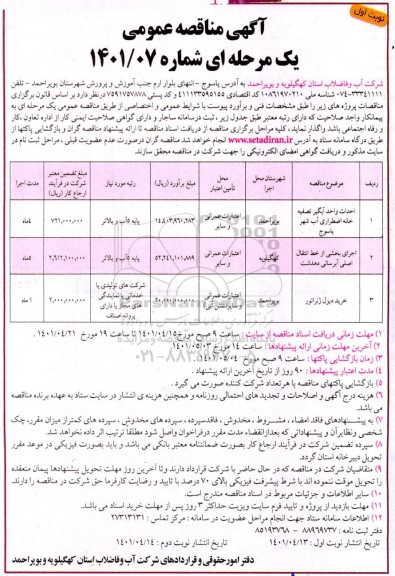 نوبت اول
آگهی مناقصه عمومی
یک مرحله ای شماره ۱۴۰۱/۰۷
شرکت آب وفاضلاب استان کهگیلویه و بویراحمد به آدرس یاسوج – انتهای بلوار ارم جنب آموزش و پرورش شهرستان بویراحمد – تلفن
۰۷۴-۳۳۳۴۱۱۱۱ شناسه ملی ۱۰۸۶۱۹۷۰۲۱۰ کد اقتصادی ۴۱۱۱۳۳۵۹۵۱۵۵ و کد پستی ۷۵۹۱۷۵۷۸۷۸ درنظر دارد بر اساس قانون برگزاری
مناقصات پروژه های زیر را طبق مشخصات فنی و برآورد پیوست با شرایط عمومی و اختصاصی از طریق مناقصه عمومی یک مرحله ای به
پیمانکار واجد صلاحیت که دارای رتبه معتبر طبق جدول زیر ، ثبت درسامانه ساجار و دارای گواهی صلاحیت ایمنی کار از اداره تعاون ،کار
و رفاه اجتماعی باشد واگذار نماید ، کلیه مراحل برگزاری مناقصه از دریافت اسناد مناقصه تا ارائه پیشنهاد مناقصه گران و بازگشایی پاکتها از
طریق درگاه سامانه ستاد به آدرس www.setadiran.ir انجام خواهد شد مناقصه گران درصورت عدم عضویت قبلی ، مراحل ثبت نام در
سایت مذکور و دریافت گواهی امضای الکترونیکی را جهت شرکت در مناقصه محقق سازند.
ردیف | موضوع مناقصه | شهرستان محل اجرا | محل تأمین اعتبار | مبلغ برآورد (ریال) | رتبه مورد نیاز | مبلغ تضمین معتبر شرکت در فرآیند ارجاع کار (ریال) | مدت اجرا
۱ | احداث واحد آبگیر تصفیه خانه اضطراری آب شهر یاسوج | بویراحمد | اعتبارات عمرانی و سایر | پایه ۵آب و بالاتر | ۴ماه
۲ | اجرای بخشی از خط انتقال اصلی آبرسانی دهدشت | کهگیلویه | اعتبارات عمرانی و سایر | ۵۲,۲۴۱,۱۰۱,۸۸۹ | پایه ۵آب و بالاتر | ۲,۶۱۲,۰۰۰,۰۰۰ | ۵ماه
۳ | خرید دیزل ژنراتور | بویراحمد | شرکت های تولیدی یا خدماتی یا نمایندگی های مجاز یا دارای پروانه اصناف | ۲,۰۰۰,۰۰۰,۰۰۰ | ۱ ماه
۱) مهلت زمانی دریافت اسناد مناقصه از سایت : ساعت ۹ صبح مورخ ۱۴۰۱/۰۴/۱۵ تا ساعت ۱۹ مورخ ۱۴۰۱/۰۴/۲۱ .
۲) آخرین مهلت زمانی ارائه پیشنهادها : ساعت ۱۴ مورخ ۱۴۰۱/۰۵/۰۳
۳) زمان بازگشایی پاکتها : ساعت ۹ صبح مورخ ۱۴۰۱/۰۵/۰۴
۴) مدت اعتبار پیشنهادها : ۹۰ روز از تاریخ آخرین ارائه پیشنهاد .
۵) بازگشایی پاکتهای مناقصه با هرتعداد شرکت کننده صورت می گیرد .
۶) هزینه درج آگهی و اصلاحات و تجدید های احتمالی روزنامه و همچنین هزینه ی انتشار در سایت ستاد به عهده برنده مناقصه
می باشد.
۷) به پیشنهادهای فاقد امضاء ، مشروط ، مخدوش ، فاقدسپرده ، سپرده های مخدوش ، سپرده های کمتراز میزان مقرر، چک
شخصی ونظایرآن و پیشنهاداتی که بعدازانقضاء مدت مقرر درفراخوان واصل شود مطلقا ترتیب اثر داده نخواهد شد.
۸) سپرده تضمین شرکت در فرآیند ارجاع کار بصورت ضمانتنامه معتبر بانکی می باشد و باید بصورت فیزیکی در موعد مقرر
تحویل دبیرخانه استان گردد.
۹) متقاضیان شرکت در مناقصه که در حال حاضر با شرکت قرارداد دارند وتا آخرین روز مهلت تحویل پیشنهادها پیمان منعقده
را تحویل موقت ننموده اند با شرط پیشرفت فیزیکی بالای ۷۰ درصد با تایید و رضایت کارفرما حق شرکت در مناقصه را دارند.
۱۰) سایر اطلاعات و جزئیات مربوط در اسناد مناقصه مندرج است.
۱۱) مهلت بازدید از پروژه و تایید فرم سایت ویزیت حداکثر ۳ روز پس از مهلت خرید اسناد می باشد.
۱۲) اطلاعات سامانه ستاد جهت انجام مراحل عضویت در سامانه : مرکز تماس : ۲۷۳۱۳۱۳۱
دفتر ثبت نامه : ۸۸۹۶۹۷۳۷ – ۸۵۱۹۳۷۶۸
تاریخ انتشار نوبت اول : ۱۴۰۱/۰۴/۱۳ تاریخ انتشار نوبت دوم : ۱۴۰۱/۰۴/۱۴
دفتر امورحقوقی و قراردادهای شرکت آب وفاضلاب استان کهگیلویه و بویراحمد